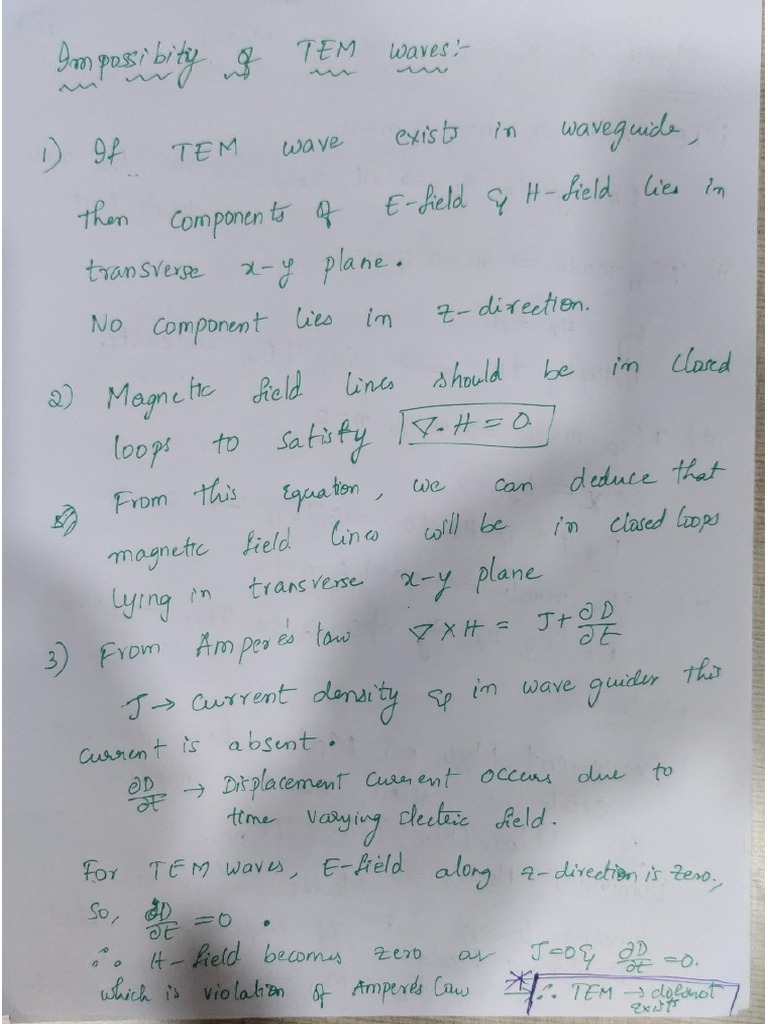 Impossibity of TEM waves:-
1) If TEM wave exists in waveguide,
then components of E-field & H-field lies in
transverse x-y plane.
No component lies in z-direction.
2) Magnetic field lines should be in closed
loops to satisfy ∇.H=0.
From this Equation, we can deduce that
magnetic field lines will be in closed loops
lying in transverse x-y plane
3) From Ampere's law ∇×H = J+∂D/∂t
J→ current density & in wave guides this
current is absent.
∂D/∂t → Displacement current occurs due to
time varying electric field.
For TEM waves, E-field along z-direction is zero.,
So, ∂D/∂t =0.
∴ H-field becomes zero as J=0 & ∂D/∂t =0.
which is violation of Ampere's law * ∴ TEM → doesnot exists